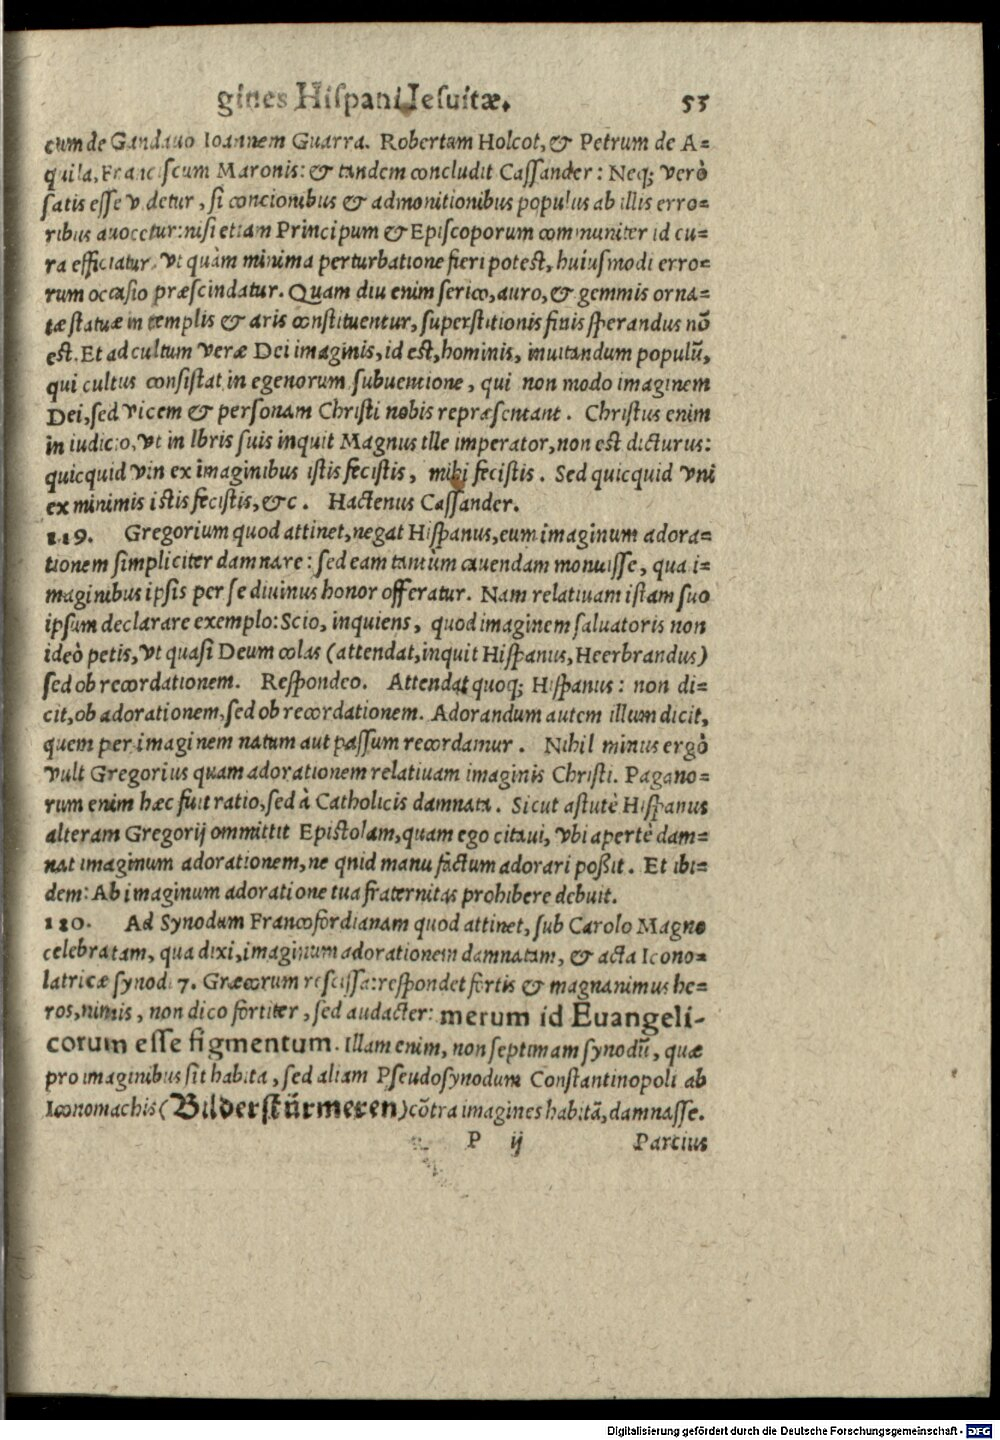 gines Hiſpani Ieſuitæ. 55
cum de Gandauo Ioannem Guarra. Robertum Holcot, & Petrum de A=
quila, Franciſcum Maronis: & tandem concludit Caſſander: Neq; verò
ſatis eſſe videtur, ſi concionibus & admonitionibus populus ab illis erro=
ribus auocetur: niſi etiam Principum & Epiſcoporum communiter id cu=
ra efficiatur, vt quàm minima perturbatione fieri poteſt, huiuſmodi erro=
rum occaſio præſcindatur. Quam diu enim ſerico, auro, & gemmis orna=
tæ ſtatuæ in templis & aris conſtituentur, ſuperſtitionis finis ſperandus nō
eſt. Et ad cultum veræ Dei imaginis, id eſt, hominis, inuitandum populū,
qui cultus conſiſtat in egenorum ſubuentione, qui non modo imaginem
Dei, ſed vicem & perſonam Chriſti nobis repræſentant. Chriſtus enim
in iudicio, vt in lbris ſuis inquit Magnus ille imperator, non eſt dicturus:
quicquid vin ex imaginibus iſtis feciſtis, mihi feciſtis. Sed quicquid vni
ex minimis iſtis feciſtis, &c. Hactenus Caſſander.
119. Gregorium quod attinet, negat Hiſpanus, eum imaginum adora=
tionem ſimpliciter damnare: ſed eam tantùm cauendam monuiſſe, qua i=
maginibus ipſis per ſe diuinus honor offeratur. Nam relatiuam iſtam ſuo
ipſum declarare exemplo: Scio, inquiens, quod imaginem ſaluatoris non
ideò petis, vt quaſi Deum colas (attendat, inquit Hiſpanus, Heerbrandus)
ſed ob recordationem. Reſpondeo. Attendat quoq; Hiſpanus: non di=
cit, ob adorationem, ſed ob recordationem. Adorandum autem illum dicit,
quem per imaginem natum aut paſſum recordamur. Nihil minus ergò
vult Gregorius quam adorationem relatiuam imaginis Chriſti. Pagano=
rum enim hæc fuit ratio, ſed à Catholicis damnata. Sicut aſtutè Hiſpanus
alteram Gregorij ommittit Epiſtolam, quam ego citaui, vbi apertè dam=
nat imaginum adorationem, ne qnid manu factum adorari poßit. Et ibi=
dem: Ab imaginum adoratione tua fraternitas prohibere debuit.
120. Ad Synodum Francofordianam quod attinet, ſub Carolo Magno
celebratam, qua dixi, imaginum adorationem damnatam, & acta Icono=
latricæ ſynodi 7. Græcorum reſciſſa: reſpondet fortis & magnanimus he=
ros, nimis, non dico fortiter, ſed audacter: merum id Euangeli-
corum eſſe figmentum. Illam enim, non ſeptimam ſynodū, quæ
pro imaginibus ſit habita, ſed aliam Pſeudoſynodum Conſtantinopoli ab
Iconomachis (Bilderſtürmeren) cōtra imagines habitā, damnaſſe.
P ij Parcius
Digitalisierung gefördert durch die Deutsche Forschungsgemeinschaft - DFG